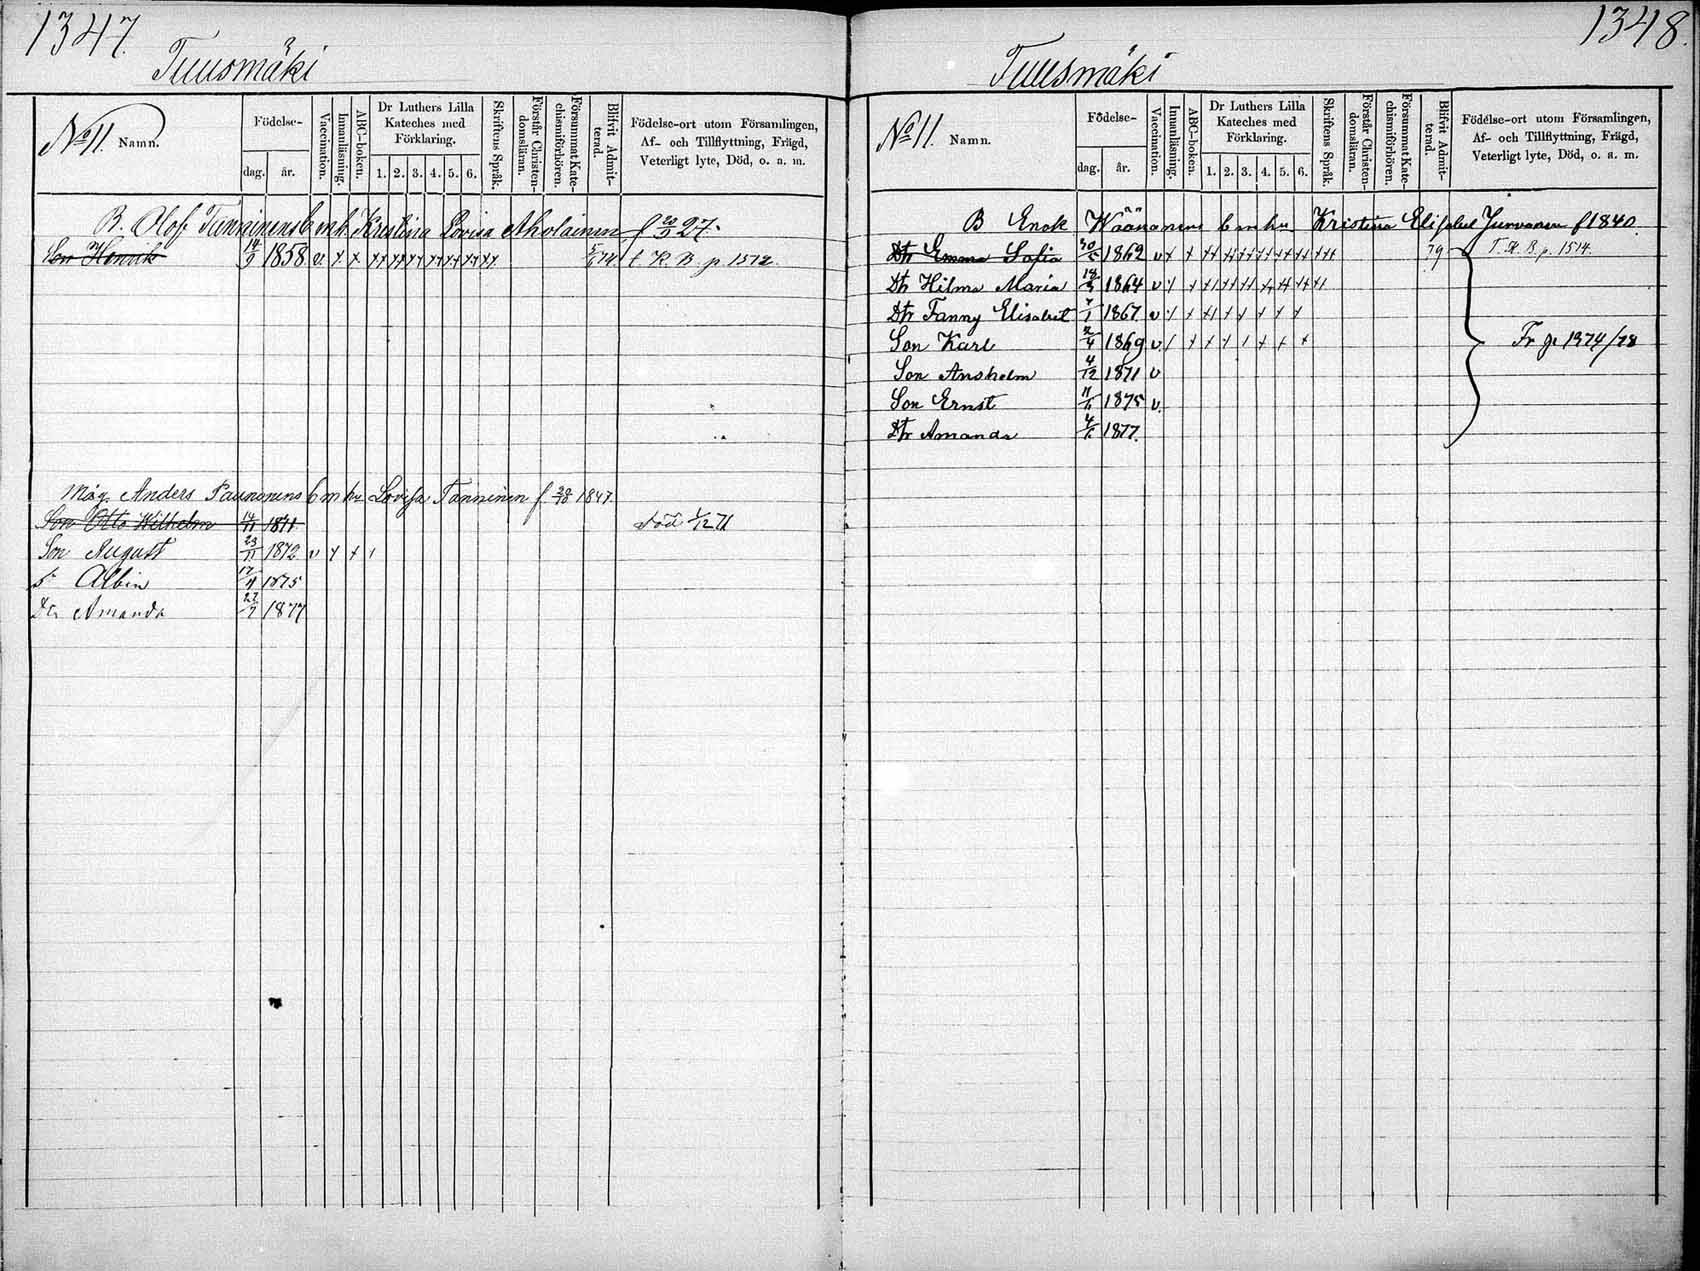 1347.
Tuusmäki
No 11. Namn.
Födelse-
dag. år.
Vaccination.
Innanläsning.
ABC-boken.
Dr Luthers Lilla Kateches med Förklaring.
1. 2. 3. 4. 5. 6.
Skriftens Språk.
Förstår Christendomsläran.
Försummat Katechismiförhören.
Blifvit Admitterad.
Födelse-ort utom Församlingen,
Af- och Tillflyttning, Frägd,
Veterligt lyte, Död, o. a. m.
B. Olof h. Kristina Lovisa Aholainen f 27.
Son Henrik 14/9 1858 v x x xx xx xx xx xx xx xx t K. B. p 1512.
Måg. Anders Paunonens b m hu Lovisa Tanninen f 1847.
Son Otto Wilhelm 14/11 1871 död 1/12 71
Son August 23/11 1872 v x x
Sn Albin 1875
Dr Amanda 22/7 1877
1348.
Tuusmäki
No 11. Namn.
Födelse-
dag. år.
Vaccination.
Innanläsning.
ABC-boken.
Dr Luthers Lilla Kateches med Förklaring.
1. 2. 3. 4. 5. 6.
Skriftens Språk.
Förstår Christendomsläran.
Försummat Katechismiförhören.
Blifvit Admitterad.
Födelse-ort utom Församlingen,
Af- och Tillflyttning, Frägd,
Veterligt lyte, Död, o. a. m.
B Enok Wäänänens b m hu Kristina Elisabet Jurvanen f 1840.
Dtr Emma Sofia 30/5 1862 v x x xx xx xx xx xx xx xx 79 T. K. B. p. 1514.
Dtr Hilma Maria 1864 v
Dtr Fanny Elisabet 7/1 1867 v
Son Karl 2/4 1869 v Fr p 1374/78
Son Anshelm 4/12 1871 v
Son Ernst 1875 v
Dtr Amanda 1877.